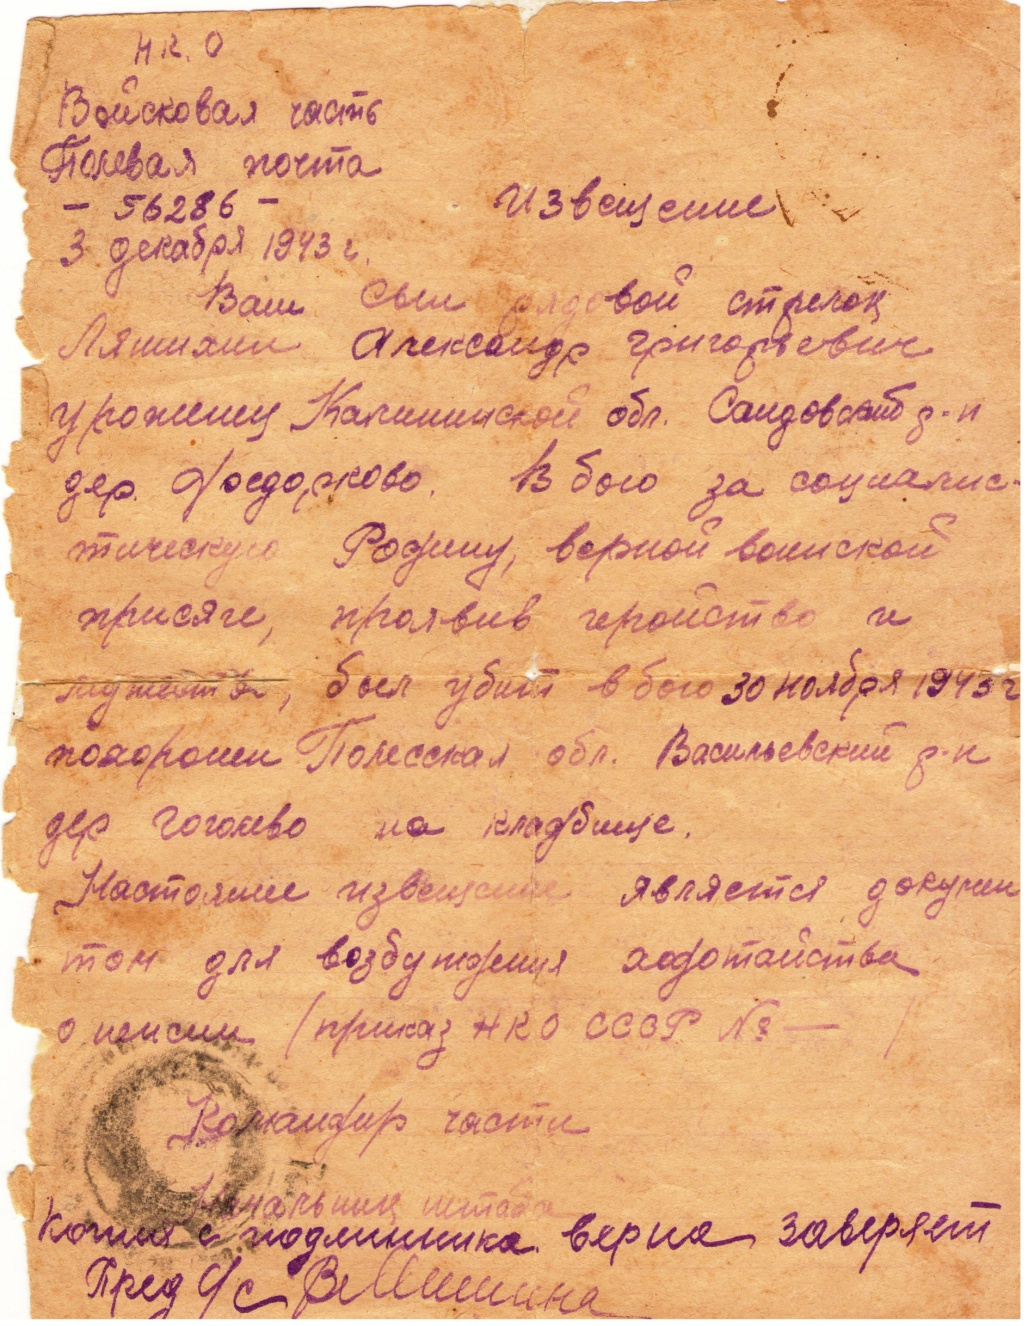 Н К. О
Войсковая часть
Полевая почта
- 56286 -
3 декабря 1943 г.
Извещение
Ваш сын рядовой стрелок
Ляпихин Александр Григорьевич
уроженец Калининской обл. Сандовский р-н
дер. В бою за социалис-
тическую Родину, верной воинской
присяге, проявив геройство и
мужество, был убит в бою 30 ноября 1943 г
похоронен Полесская обл. Васильевский р-н
дер Гоголево на кладбище.
Настоящее извещение является докумен
том для возбуждения ходотайства
о пенсии (приказ НКО СССР № — )
Командир части
Начальник штаба
Копия с подлинника верна заверяет
Пред с/с